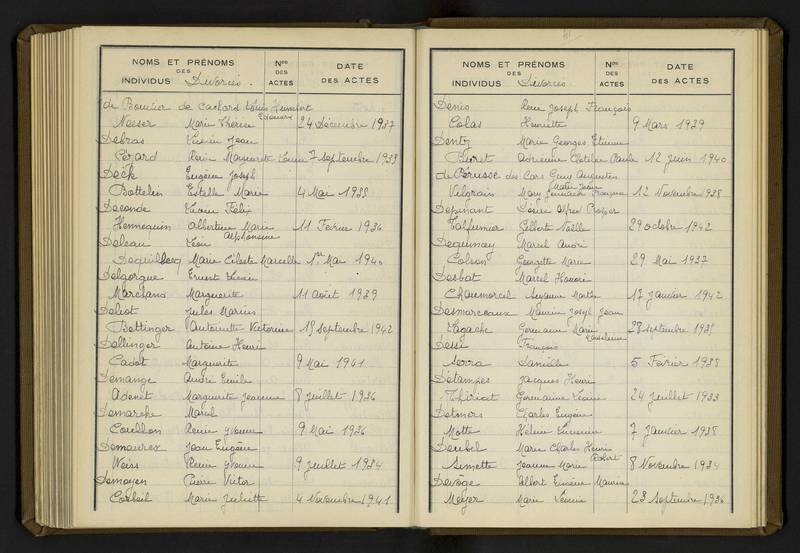 NOMS ET PRÉNOMS
DES
INDIVIDUS Divorcés.
Nos
DES
ACTES
DATE
DES ACTES
de Bouvier de Cachard Louis Humbert
Edouard
Neeser Marie Thérèse 24 Décembre 1937
Debras Lucien Jean
Cézard Marie Marguerite Louise 7 septembre 1933
Deck Eugène Joseph
Bottelin Estelle Marie 4 Mai 1938
Deconde Lucien Félix
Hennequin Albertine Marie 11 Février 1936
Alphonsine
Deleau Léon
Dequilbecq Marie Céleste Marcelle 1er Mai 1940
Delgorgue Ernest Lucien
Marchand Marguerite 11 août 1939
Deliot Jules Marius
Bottinger Antoinette Victorine 19 septembre 1942
Dellinger Antoine Henri
Cadot Marguerite 9 Mai 1941
Demange André Emile
Adenet Marguerite Jeanne 8 juillet 1936
Demarche Marcel
Couillon Renée Yvonne 9 Mai 1936
Demaurex Jean Eugène
Weiss Renée Yvonne 9 juillet 1934
Demoyen Pierre Victor
Corbeil Marie Juliette 4 Novembre 1941
NOMS ET PRÉNOMS
DES
INDIVIDUS Divorcés.
Nos
DES
ACTES
DATE
DES ACTES
Denis René Joseph François
Colas Henriette 9 Mars 1939
Denty Marie Georges Etienne
Buret Adrienne Clotilde Paule 12 juin 1940
de Pérusse des Cars Guy Augustin
Marie Josué
Velgrain Mary Françoise 12 Novembre 1938
Depinant Désiré Alfred Prosper
Talfumier Gilberte Noëlle 29 octobre 1942
Dequincey Marcel André
Colson Georgette Marie 29 Mai 1937
Desbat Marcel Honoré
Chasmorcel Suzanne Marthe 17 janvier 1942
Desmarceaux Maurice Joseph Jean
Tagache Germaine Marie 28 septembre 1938
Desse François
Serra Danielle 5 Février 1938
Détampes Jacques Henri
Thiriot Germaine Louise 24 juillet 1933
Detmers Charles Eugène
Motte Hélène 7 janvier 1938
Deubel Marie Charles Henri
Robert
Simette Jeanne Marie 8 Novembre 1934
Devöge Albert Eugène Maurice
Meyer Marie Louise 23 septembre 1936